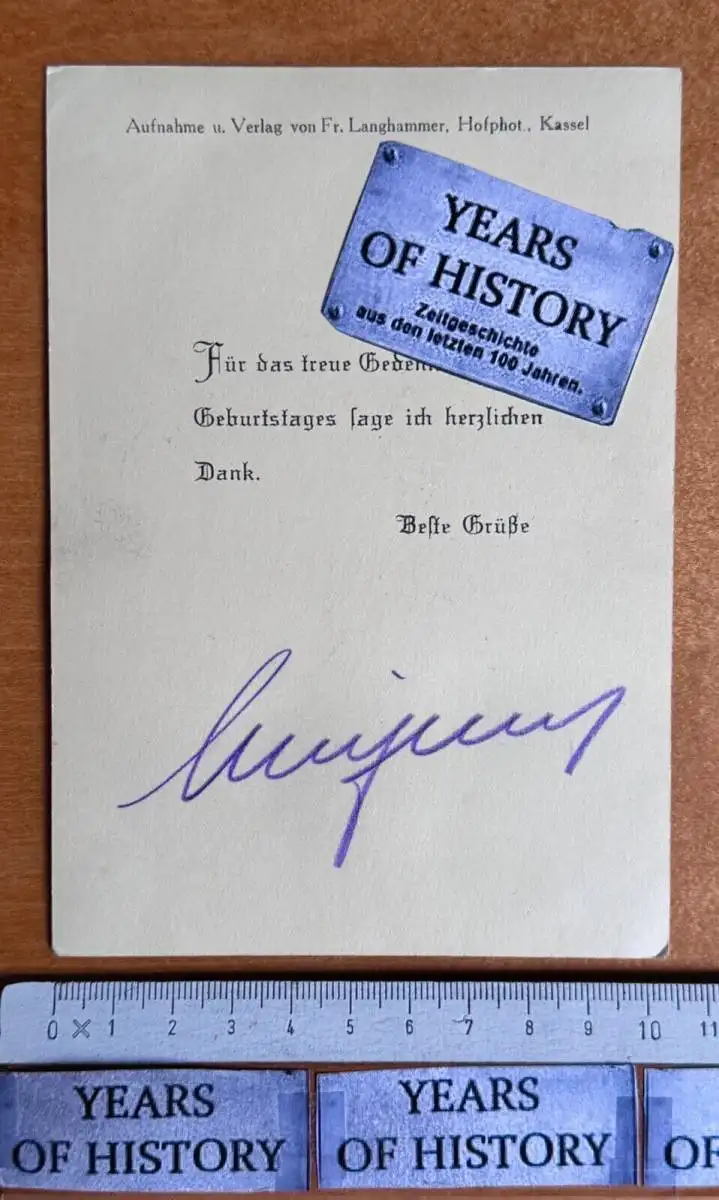 Aufnahme u. Verlag von Fr. Langhammer, Hofphot., Kassel
YEARS
OF HISTORY
Zeitgeschichte
aus den letzten 100 Jahren.
Für das treue
Geburtstages sage ich herzlichen
Dank.
Beste Grüße
0 1 2 3 4 5 6 7 8 9 10 11
YEARS
OF HISTORY
YEARS
OF HISTORY
OF